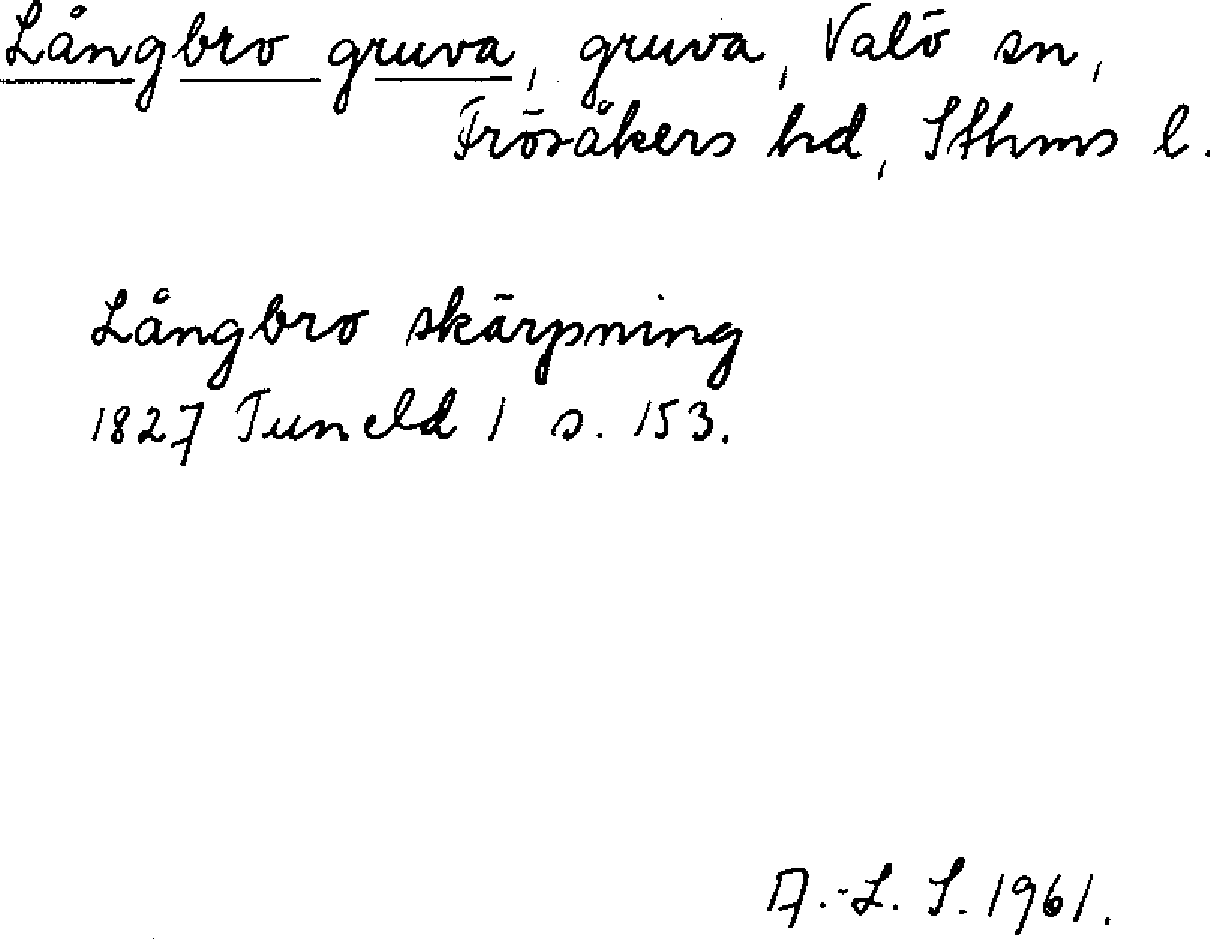 Långbro gruva, gruva, Valö sn,
Frösåkers hd, Sthms l.
Långbro skärpning
1827 Tuneld 1 s. 153.
A.-L. S. 1961.